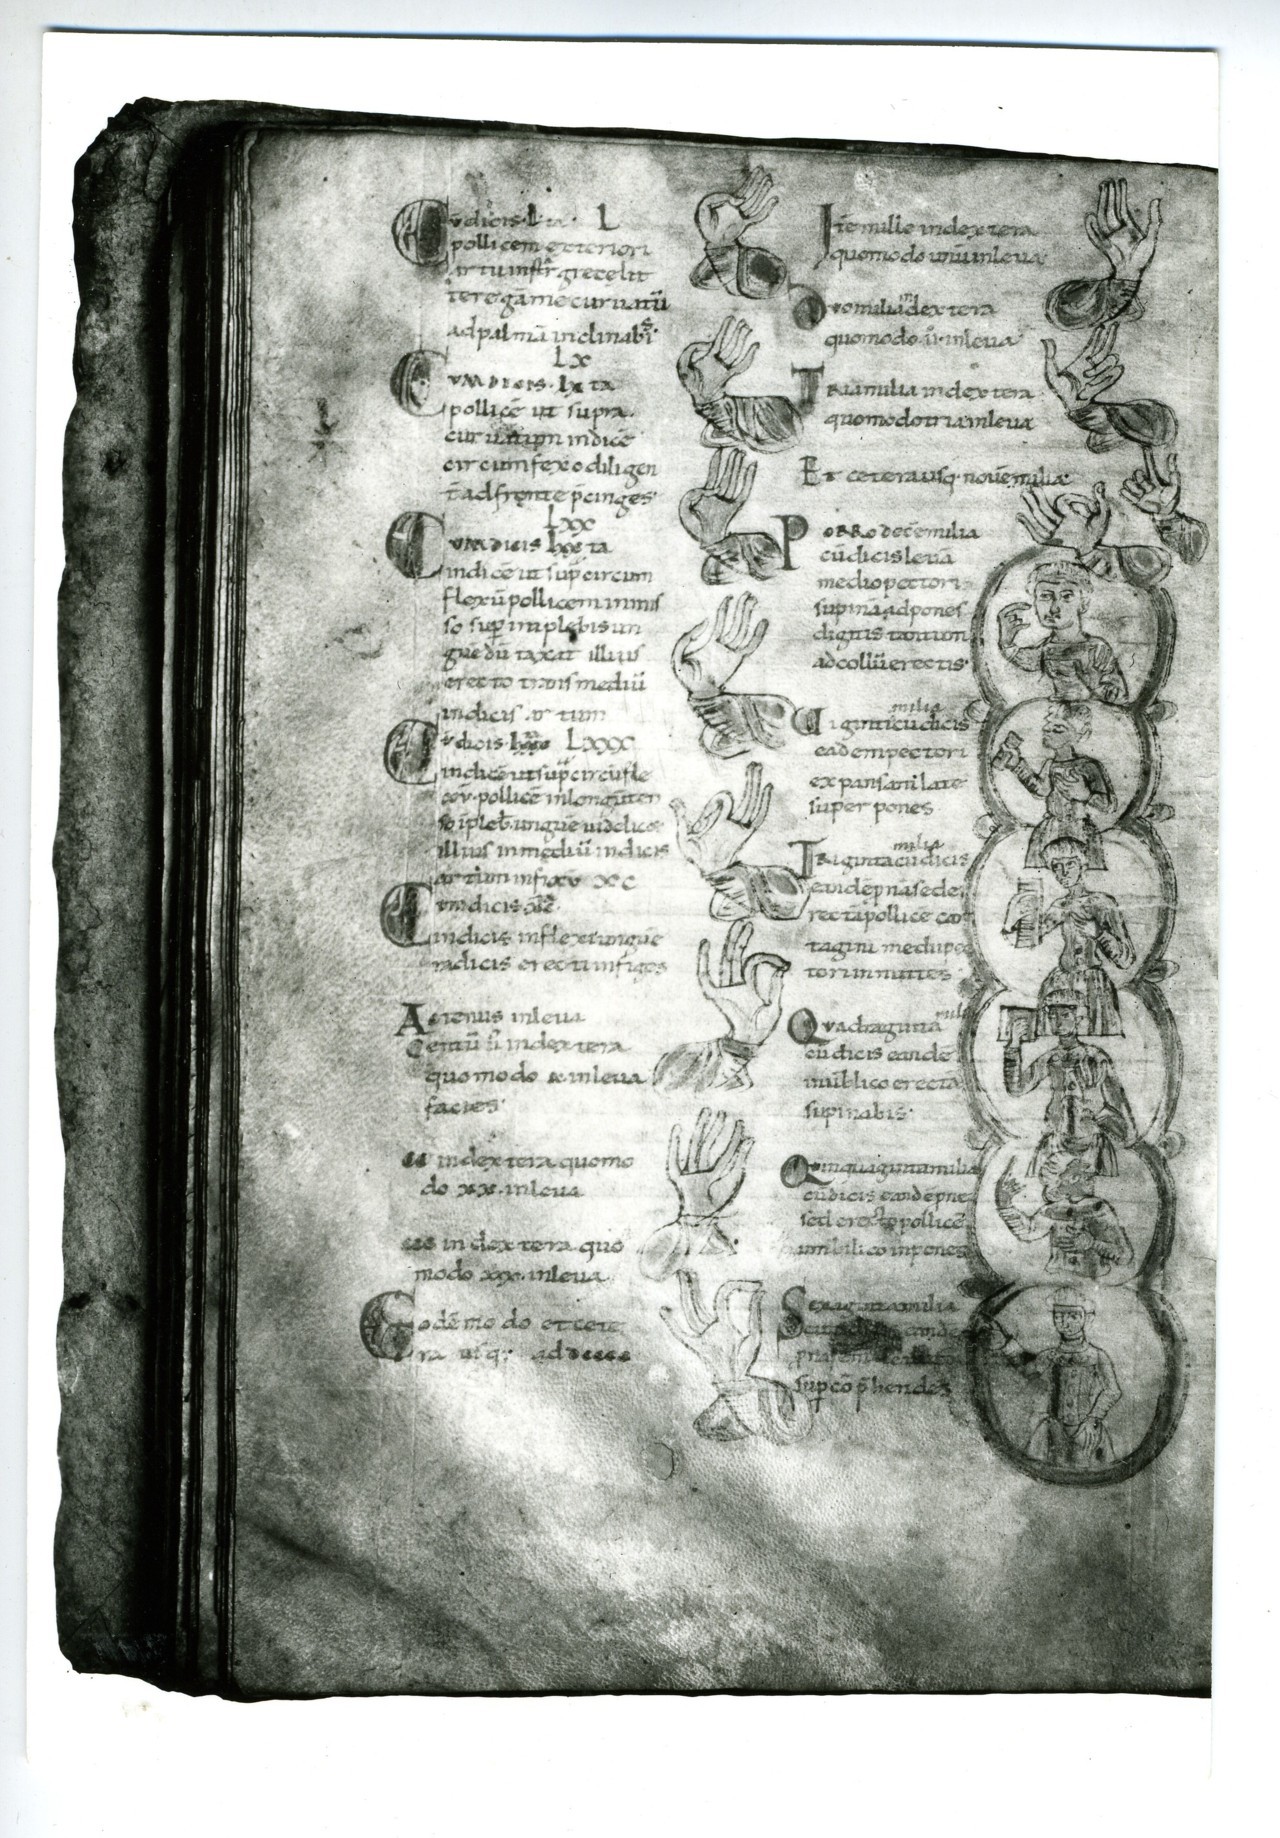 Cū dicis L L
pollicem exteriori
artu instr̄ grece litt
tere gāme curvatū
ad palmā inclinabis
LX
Cum dicis lx ta
pollicē ut supra
curvatum indice
circumflexo diligen
t ad fronte p̄cinges
LXX
Cum dicis lxx ta
indicē ut sup̄ circum
flexū pollicem inmis
so sup implebis un
gue dū taxat illius
erecto trans mediū
indicis artum
Cū dicis LXXX
indicē ut sup̄ circūfle
pollicē in longū ten
so īpleb ungue videlicet
illius in mediū indicis
artum infixū XC
Cum dicis
indicis inflexi ungue
radicis erecti infiges
Actenus in leva
Centū in dextera
quomodo x in leva
facies
cc in dextera quomo
do xx in leva
ccc in dextera quo
modo xxx in leva
Eodē modo et cete
ra usq; ad dcccc
Itē mille in dextera
quomodo unū in leva
Duo milia in dextera
quomodo ii in leva
Tria milia in dextera
quomodo tria in leva
Et cetera usq; novē milia
Porro decē milia
cū dicis levā
medio pectori
supinā adpones
digitis tantum
ad collū erectis
milia
Viginti cū dicis
eadem pectori
expansam late
super pones
milia
Triginta cū dicis
eandē prona sede
recta pollice car
tagini medii pec
toris inmittes
Quadraginta mil
cū dicis eandē
in ūblico erectā
supinabis
Quinquaginta milia
cū dicis eandē pne
sed erecto pollice
umbilico inpones
Sexaginta milia
cū eande
sup cōp̄hendes